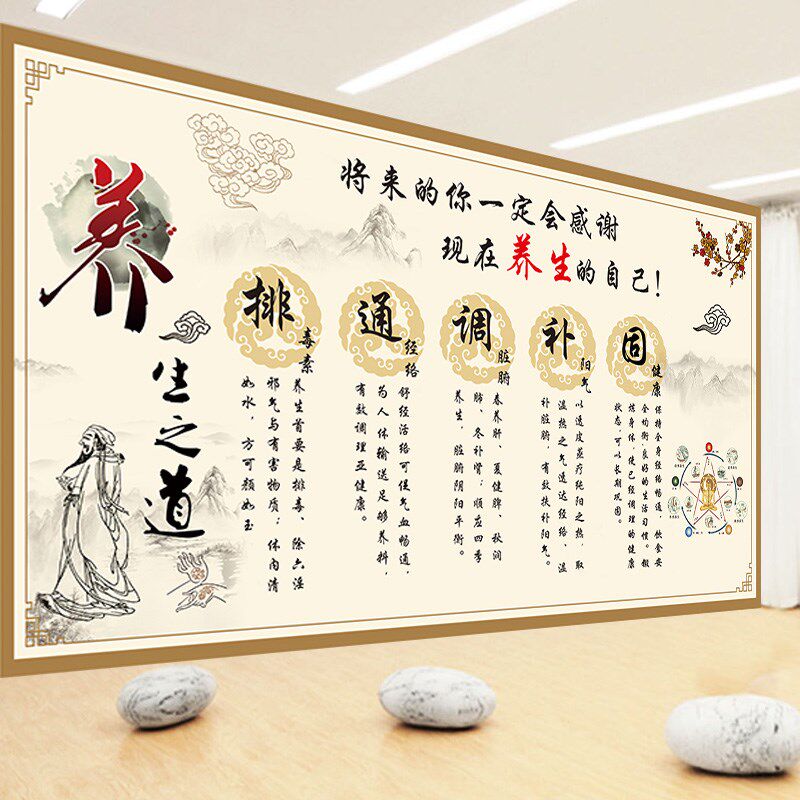 养
生之道
将来的你一定会感谢
现在养生的自己！
排
毒素
养生首要是排毒、除六淫
邪气与有害物质；体内清
如水，方可颜如玉
通
经络
舒经活络可促气血畅通，
为人体输送足够养料，
有效调理亚健康。
调
脏腑
春养肝、夏健脾、秋润
肺、冬补肾；顺应四季
养生，脏腑阴阳平衡。
补
阳气
以透皮蒸疗纯阳之热，取
温热之气通达经络、温
补脏腑，有效扶补阳气。
固
健康
保持全身经络畅通、饮食安
全均衡良好的生活习惯。锻
炼身体，使已经调理的健康
状态，可以长期巩固。